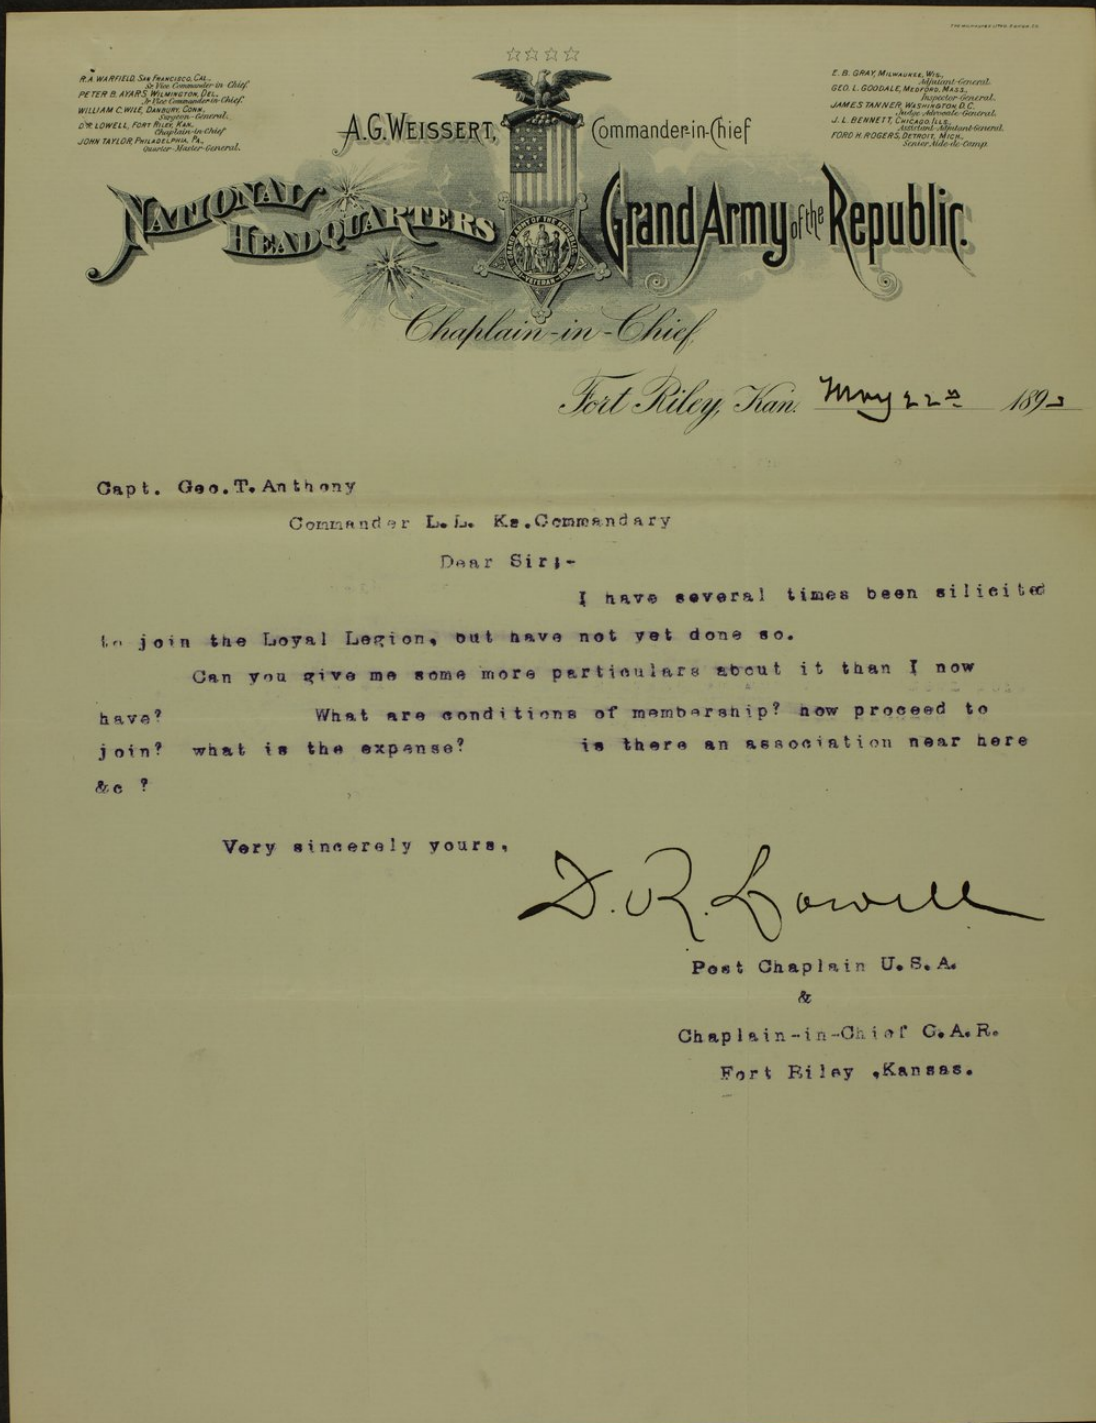 R.A. WARFIELD, SAN FRANCISCO, CAL.,
Sr Vice Commander in Chief.
PETER B. AYARS, WILMINGTON, DEL.,
Jr Vice Commander-in-Chief.
WILLIAM C. WILE, DANBURY, CONN.,
Surgeon-General.
D.R. LOWELL, FORT RILEY, KAN.
Chaplain-in-Chief
JOHN TAYLOR, PHILADELPHIA, PA.,
Quarter-Master-General.
E. B. GRAY, MILWAUKEE, WIS.,
Adjutant-General.
GEO. L. GOODALE, MEDFORD, MASS.,
Inspector-General.
JAMES TANNER, WASHINGTON D.C.
Judge Advocate-General.
J. L. BENNETT, CHICAGO, ILLS.,
Assistant-Adjutant-General.
FORD H. ROGERS, DETROIT, MICH.,
Senior Aide-de-Camp.
A.G. WEISSERT, Commander-in-Chief
NATIONAL HEADQUARTERS Grand Army of the Republic.
GRAND ARMY OF THE REPUBLIC
VETERAN
Chaplain-in-Chief,
Fort Riley, Kan. May 22nd 1893
Capt. Geo.T.Anthony
Commander L.L. Ks.Commandary
Dear Sir;-
I have several times been silicited
to join the Loyal Legion, but have not yet done so.
Can you give me some more particulars about it than I now
have? What are conditions of membership? how proceed to
join? what is the expense? is there an association near here
&c ?
Very sincerely yours,
D. R. Lowell
Post Chaplain U.S.A.
&
Chaplain-in-Chief G.A.R.
Fort Riley ,Kansas.